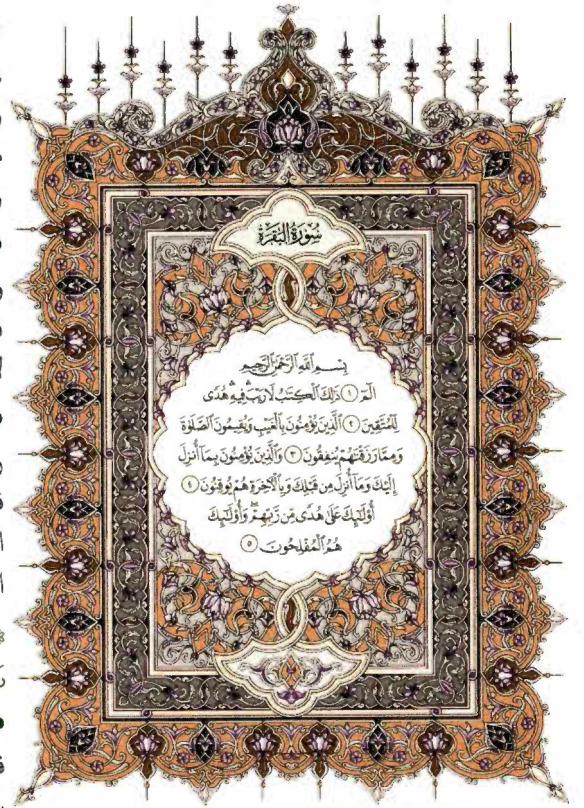 سُورَةُ البَقَرَةِ
بِسْمِ ٱللَّهِ ٱلرَّحْمَٰنِ ٱلرَّحِيمِ
الٓمٓ ١ ذَٰلِكَ ٱلْكِتَٰبُ لَا رَيْبَ ۛ فِيهِ ۛ هُدًى
لِّلْمُتَّقِينَ ٢ ٱلَّذِينَ يُؤْمِنُونَ بِٱلْغَيْبِ وَيُقِيمُونَ ٱلصَّلَوٰةَ
وَمِمَّا رَزَقْنَٰهُمْ يُنفِقُونَ ٣ وَٱلَّذِينَ يُؤْمِنُونَ بِمَآ أُنزِلَ
إِلَيْكَ وَمَآ أُنزِلَ مِن قَبْلِكَ وَبِٱلْءَاخِرَةِ هُمْ يُوقِنُونَ ٤
أُو۟لَٰٓئِكَ عَلَىٰ هُدًى مِّن رَّبِّهِمْ ۖ وَأُو۟لَٰٓئِكَ
هُمُ ٱلْمُفْلِحُونَ ٥